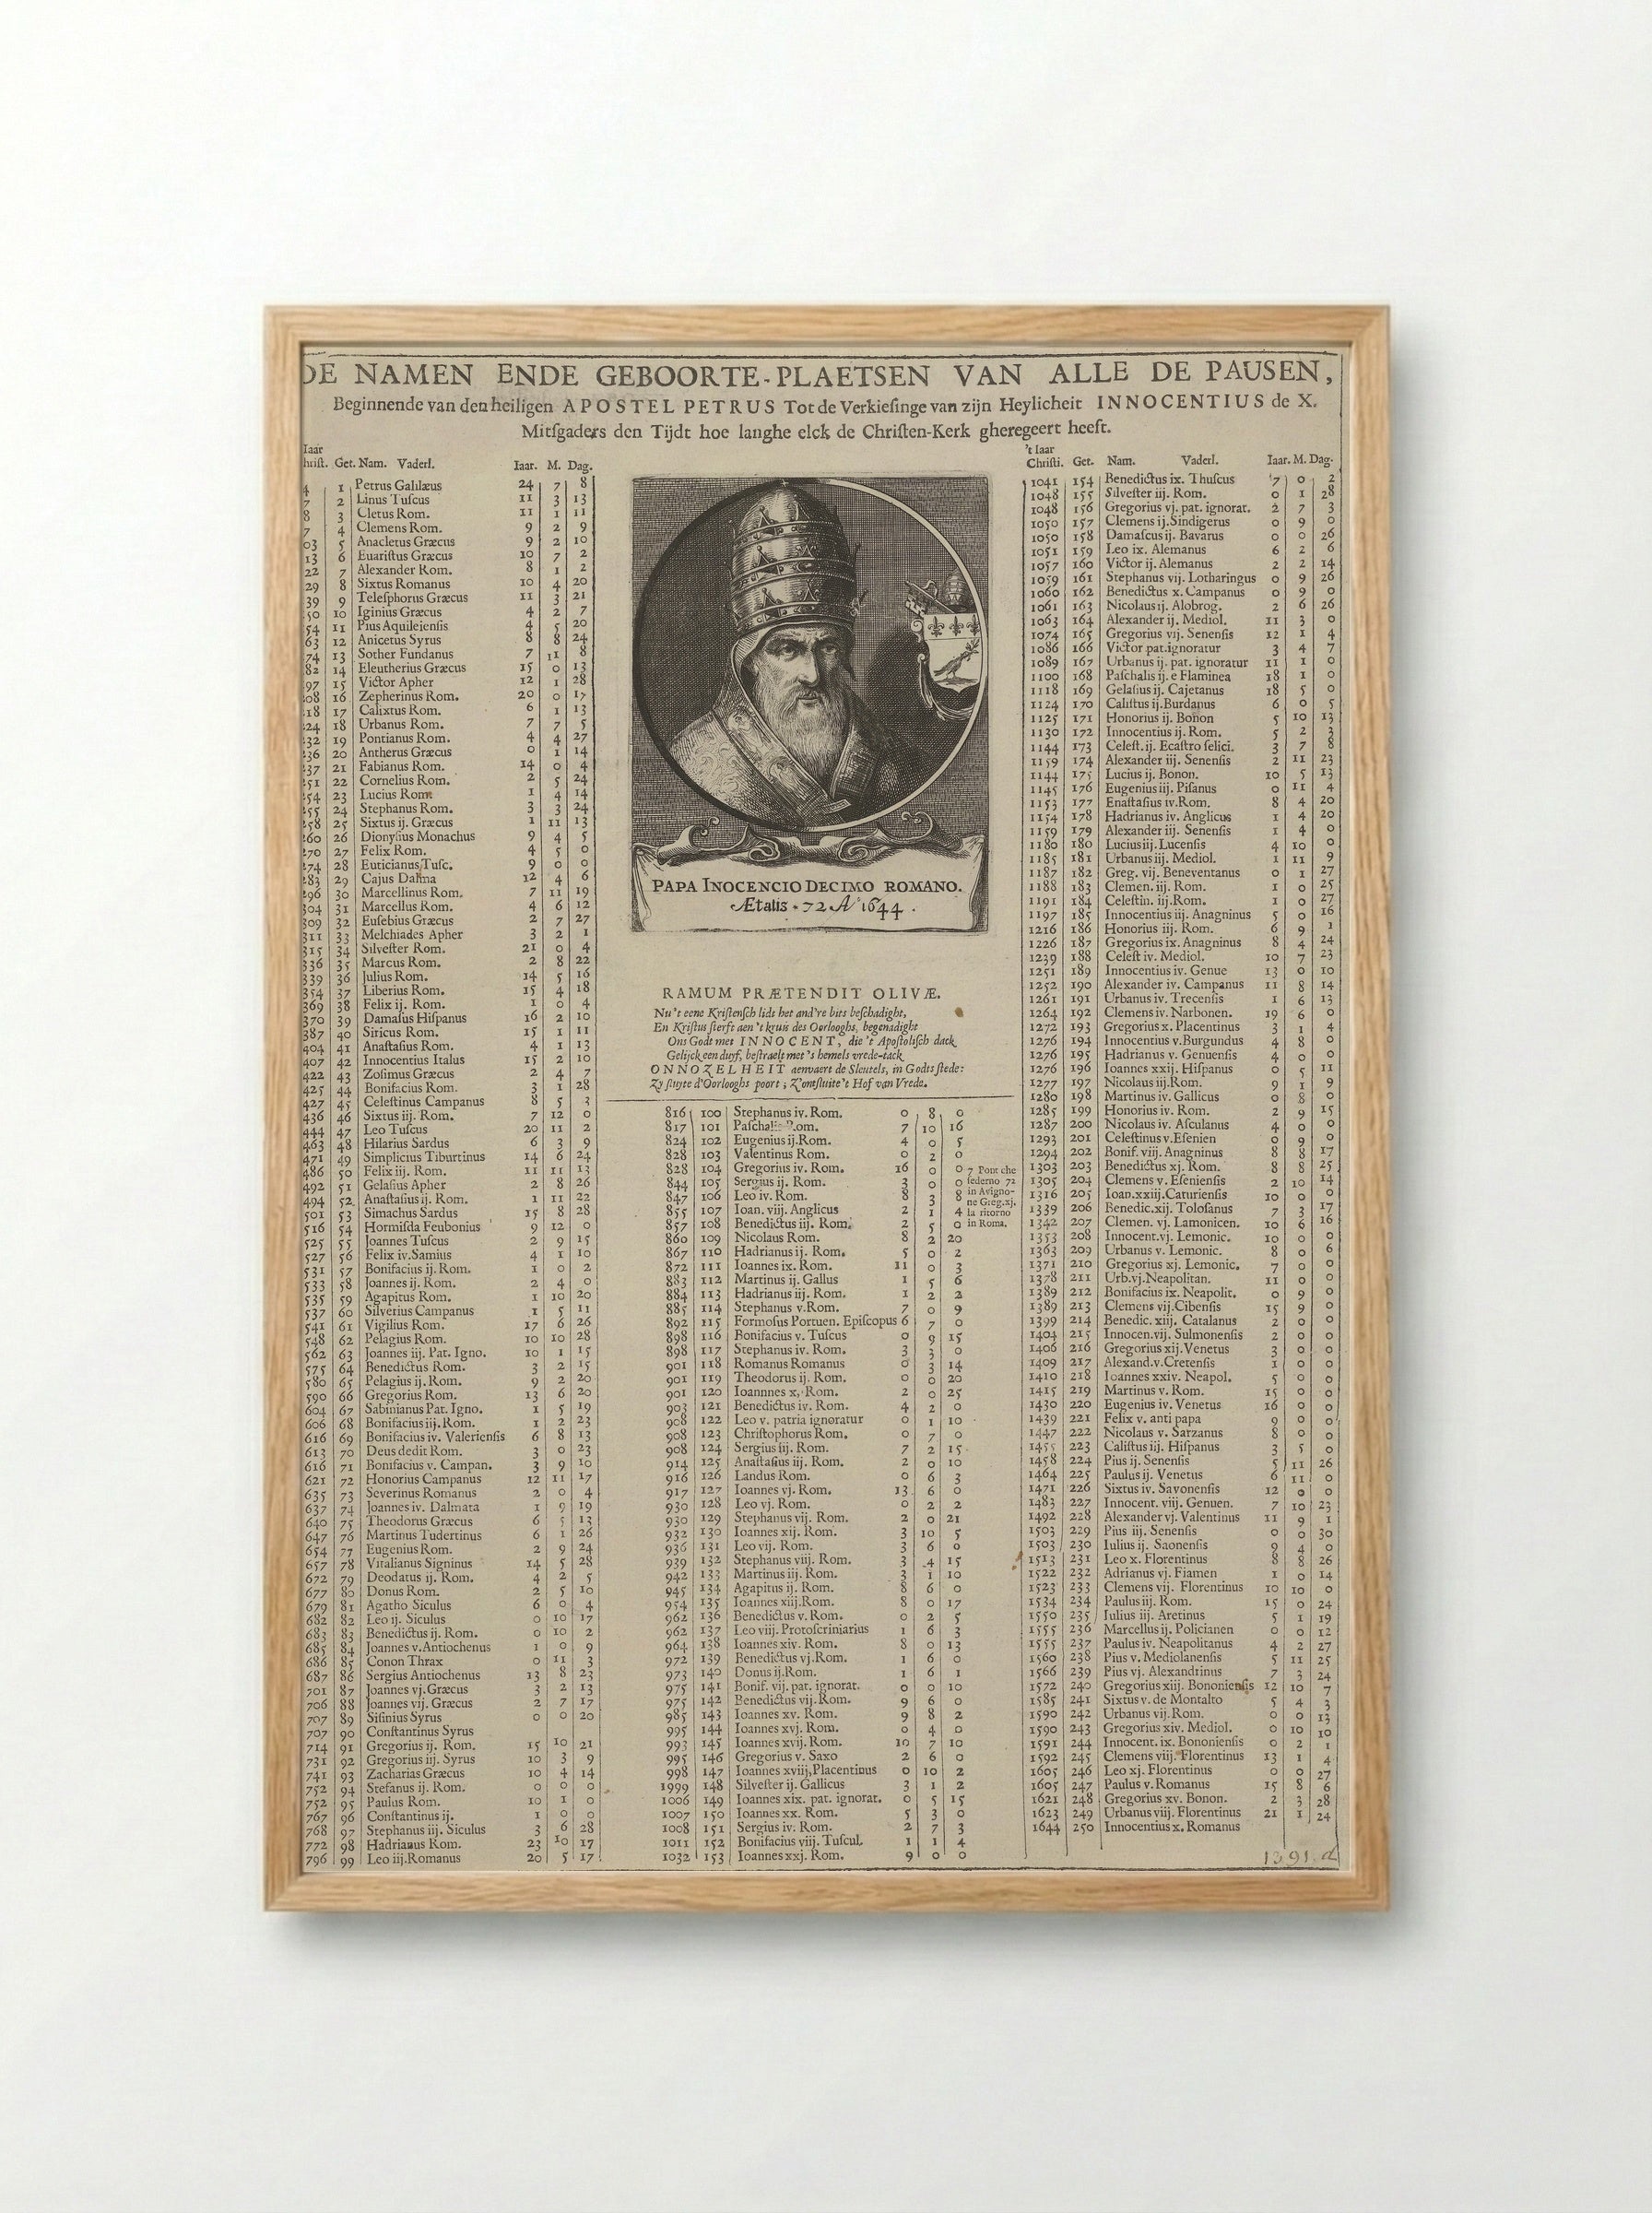 DE NAMEN ENDE GEBOORTE-PLAETSEN VAN ALLE DE PAUSEN,
Beginnende van den heiligen APOSTEL PETRUS Tot de Verkieſinge van zijn Heylicheit INNOCENTIUS de X.
Mitſgaders den Tijdt hoe langhe elck de Chriſten-Kerk gheregeert heeft.
Iaar
hriſt. Get. Nam. Vaderl. Iaar. M. Dag.
4 1 Petrus Galilæus 24 7 8
7 2 Linus Tuſcus 11 3 13
8 3 Cletus Rom. 11 1 11
7 4 Clemens Rom. 9 2 9
03 5 Anacletus Græcus 9 2 10
13 6 Euariſtus Græcus 10 7 2
22 7 Alexander Rom. 8 1 2
29 8 Sixtus Romanus 10 4 20
39 9 Teleſphorus Græcus 11 3 21
50 10 Iginius Græcus 4 2 7
54 11 Pius Aquileienſis 4 5 20
63 12 Anicetus Syrus 8 8 24
74 13 Sother Fundanus 7 11 8
82 14 Eleutherius Græcus 15 0 13
97 15 Victor Apher 12 1 28
08 16 Zepherinus Rom. 20 0 17
18 17 Calixtus Rom. 6 1 13
24 18 Urbanus Rom. 7 7 5
232 19 Pontianus Rom. 4 4 27
236 20 Antherus Græcus 0 1 14
237 21 Fabianus Rom. 14 0 4
251 22 Cornelius Rom. 2 5 24
254 23 Lucius Rom. 1 4 14
255 24 Stephanus Rom. 3 3 24
258 25 Sixtus ij. Græcus 1 11 13
260 26 Dionyſius Monachus 9 4 5
270 27 Felix Rom. 4 5 0
274 28 Euticianus Tuſc. 9 0 0
283 29 Cajus Dalma 12 4 6
296 30 Marcellinus Rom. 7 11 19
304 31 Marcellus Rom. 4 6 12
309 32 Euſebius Græcus 2 7 27
311 33 Melchiades Apher 3 2 1
315 34 Silveſter Rom. 21 0 4
336 35 Marcus Rom. 2 8 22
339 36 Julius Rom. 14 5 16
354 37 Liberius Rom. 15 4 18
369 38 Felix ij. Rom. 1 0 4
370 39 Damaſus Hiſpanus 16 2 10
387 40 Siricus Rom. 15 1 11
404 41 Anaſtaſius Rom. 4 1 13
407 42 Innocentius Italus 15 2 10
422 43 Zoſimus Græcus 2 4 7
425 44 Bonifacius Rom. 3 1 28
427 45 Celeſtinus Campanus 8 5 3
436 46 Sixtus iij. Rom. 7 12 0
444 47 Leo Tuſcus 20 11 2
463 48 Hilarius Sardus 6 3 9
471 49 Simplicius Tiburtinus 14 6 24
486 50 Felix iij. Rom. 11 11 13
492 51 Gelaſius Apher 2 8 26
494 52 Anaſtaſius ij. Rom. 1 11 22
501 53 Simachus Sardus 15 8 28
516 54 Hormiſda Feubonius 9 12 0
525 55 Joannes Tuſcus 2 9 15
527 56 Felix iv. Samius 4 1 10
531 57 Bonifacius ij. Rom. 1 0 2
533 58 Joannes ij. Rom. 2 4 0
535 59 Agapitus Rom. 1 10 20
537 60 Silverius Campanus 1 5 11
541 61 Vigilius Rom. 17 6 26
548 62 Pelagius Rom. 10 10 28
562 63 Joannes iij. Pat. Igno. 10 1 15
575 64 Benedictus Rom. 3 2 15
580 65 Pelagius ij. Rom. 9 2 20
590 66 Gregorius Rom. 13 6 20
604 67 Sabinianus Pat. Igno. 1 5 19
606 68 Bonifacius iij. Rom. 1 2 23
616 69 Bonifacius iv. Valerienſis 6 8 13
613 70 Deus dedit Rom. 3 0 23
616 71 Bonifacius v. Campan. 3 9 10
621 72 Honorius Campanus 12 11 17
635 73 Severinus Romanus 2 0 4
637 74 Joannes iv. Dalmata 1 9 19
640 75 Theodorus Græcus 6 5 13
647 76 Martinus Tudertinus 6 1 26
654 77 Eugenius Rom. 2 9 24
657 78 Vitalianus Signinus 14 5 28
672 79 Deodatus ij. Rom. 4 2 5
677 80 Donus Rom. 2 5 10
679 81 Agatho Siculus 6 0 4
682 82 Leo ij. Siculus 0 10 17
683 83 Benedictus ij. Rom. 0 10 2
685 84 Joannes v. Antiochenus 1 0 9
686 85 Conon Thrax 0 11 3
687 86 Sergius Antiochenus 13 8 23
701 87 Joannes vj. Græcus 3 2 13
706 88 Joannes vij. Græcus 2 7 17
707 89 Siſinius Syrus 0 0 20
707 90 Conſtantinus Syrus
714 91 Gregorius ij. Rom. 15 10 21
731 92 Gregorius iij. Syrus 10 3 9
741 93 Zacharias Græcus 10 4 14
752 94 Stefanus ij. Rom. 0 0 0
752 95 Paulus Rom. 10 1 0
767 96 Conſtantinus ij. 1 0 0
768 97 Stephanus iij. Siculus 3 6 28
772 98 Hadrianus Rom. 23 10 17
796 99 Leo iij. Romanus 20 5 17
PAPA INOCENCIO DECIMO ROMANO.
Ætatis. 72 A° 1644.
RAMUM PRÆTENDIT OLIVÆ.
Nu 't eene Kriſtenſch lidt het and're bits beſchadight,
En Kriſtus ſterft aen 't kruis des Oorlooghs, begenadight
Ons Godt met INNOCENT, die 't Apoſtoliſch dack
Gelijck een duyf, beſtraelt met 's hemels vrede-tack
ONNOZELHEIT aenvaert de Sleutels, in Godts ſtede:
Zy ſluyte d'Oorlooghs poort; Z'ontſluite 't Hof van Vrede.
816 100 Stephanus iv. Rom. 0 8 0
817 101 Paſchalis Rom. 7 10 16
824 102 Eugenius ij. Rom. 4 0 5
828 103 Valentinus Rom. 0 2 0
828 104 Gregorius iv. Rom. 16 0 0
844 105 Sergius ij. Rom. 3 0 0
847 106 Leo iv. Rom. 8 3 8
855 107 Ioan. viij. Anglicus 2 1 4
857 108 Benedictus iij. Rom. 2 5 0
860 109 Nicolaus Rom. 8 2 20
867 110 Hadrianus ij. Rom. 5 0 2
872 111 Ioannes ix. Rom. 11 0 3
883 112 Martinus ij. Gallus 1 5 6
884 113 Hadrianus iij. Rom. 1 2 2
885 114 Stephanus v. Rom. 7 0 9
892 115 Formoſus Portuen. Epiſcopus 6 7 0
898 116 Bonifacius v. Tuſcus 0 9 15
898 117 Stephanus iv. Rom. 3 3 0
901 118 Romanus Romanus 0 3 14
901 119 Theodorus ij. Rom. 0 0 20
901 120 Ioannnes x. Rom. 2 0 25
903 121 Benedictus iv. Rom. 4 2 0
908 122 Leo v. patria ignoratur 0 1 10
908 123 Chriſtophorus Rom. 0 7 0
908 124 Sergius iij. Rom. 7 2 15
914 125 Anaſtaſius iij. Rom. 2 0 10
916 126 Landus Rom. 0 6 3
917 127 Ioannes vj. Rom. 13 6 0
930 128 Leo vj. Rom. 0 2 2
930 129 Stephanus vij. Rom. 2 0 21
932 130 Ioannes xij. Rom. 3 10 5
936 131 Leo vij. Rom. 3 6 0
939 132 Stephanus viij. Rom. 3 4 15
942 133 Martinus iij. Rom. 3 1 10
945 134 Agapitus ij. Rom. 8 6 0
954 135 Ioannes xiij. Rom. 8 0 17
962 136 Benedictus v. Rom. 0 2 5
962 137 Leo viij. Protoſcriniarius 1 6 3
964 138 Ioannes xiv. Rom. 8 0 13
972 139 Benedictus vj. Rom. 1 6 0
973 140 Donus ij. Rom. 1 6 1
975 141 Bonif. vij. pat. ignorat. 0 0 10
975 142 Benedictus vij. Rom. 9 6 0
985 143 Ioannes xv. Rom. 9 8 2
995 144 Ioannes xvj. Rom. 0 4 0
993 145 Ioannes xvij. Rom. 10 7 10
995 146 Gregorius v. Saxo 2 6 0
998 147 Ioannes xviij, Placentinus 0 10 2
1999 148 Silveſter ij. Gallicus 3 1 2
1006 149 Ioannes xix. pat. ignorat. 0 5 15
1007 150 Ioannes xx. Rom. 5 3 0
1008 151 Sergius iv. Rom. 2 7 3
1011 152 Bonifacius viij. Tuſcul. 1 1 4
1032 153 Ioannes xxj. Rom. 9 0 0
7 Pont che
ſederno 72
in Avigno-
ne Greg. xj.
la ritorno
in Roma.
't Iaar
Chriſti. Get. Nam. Vaderl. Iaar. M. Dag.
1041 154 Benedictus ix. Thuſcus 7 0 2
1048 155 Silveſter iij. Rom. 0 1 28
1048 156 Gregorius vj. pat. ignorat. 2 7 3
1050 157 Clemens ij. Sindigerus 0 9 0
1050 158 Damaſcus ij. Bavarus 0 0 26
1051 159 Leo ix. Alemanus 6 2 6
1057 160 Victor ij. Alemanus 2 2 14
1059 161 Stephanus vij. Lotharingus 0 9 26
1060 162 Benedictus x. Campanus 0 9 0
1061 163 Nicolaus ij. Alobrog. 2 6 26
1063 164 Alexander ij. Mediol. 11 3 0
1074 165 Gregorius vij. Senenſis 12 1 4
1086 166 Victor pat. ignoratur 3 4 7
1089 167 Urbanus ij. pat. ignoratur 11 1 0
1100 168 Paſchalis ij. e Flaminea 18 1 0
1118 169 Gelaſius ij. Cajetanus 18 5 0
1124 170 Caliſtus ij. Burdanus 6 0 5
1125 171 Honorius ij. Bonon 5 10 13
1130 172 Innocentius ij. Rom. 5 2 3
1144 173 Celeſt. ij. Ecaſtro felici. 3 7 8
1159 174 Alexander iij. Senenſis 2 11 23
1144 175 Lucius ij. Bonon. 10 5 13
1145 176 Eugenius iij. Piſanus 0 11 4
1153 177 Enaſtaſius iv. Rom. 8 4 20
1154 178 Hadrianus iv. Anglicus 1 4 20
1159 179 Alexander iij. Senenſis 1 4 0
1180 180 Lucius iij. Lucenſis 4 10 0
1185 181 Urbanus iij. Mediol. 1 11 9
1187 182 Greg. vij. Beneventanus 0 1 27
1188 183 Clemen. iij. Rom. 1 0 25
1191 184 Celeſtin. iij. Rom. 1 0 27
1197 185 Innocentius iij. Anagninus 5 0 16
1216 186 Honorius iij. Rom. 6 9 1
1226 187 Gregorius ix. Anagninus 8 4 24
1239 188 Celeſt iv. Mediol. 10 7 23
1251 189 Innocentius iv. Genue 13 0 10
1252 190 Alexander iv. Campanus 11 8 14
1261 191 Urbanus iv. Trecenſis 1 6 13
1264 192 Clemens iv. Narbonen. 19 6 0
1272 193 Gregorius x. Placentinus 3 1 4
1276 194 Innocentius v. Burgundus 4 8 0
1276 195 Hadrianus v. Genuenſis 4 0 0
1276 196 Ioannes xxij. Hiſpanus 0 5 11
1277 197 Nicolaus iij. Rom. 9 1 9
1280 198 Martinus iv. Gallicus 0 8 0
1285 199 Honorius iv. Rom. 2 9 15
1287 200 Nicolaus iv. Aſculanus 4 0 0
1293 201 Celeſtinus v. Eſenien 0 9 0
1294 202 Bonif. viij. Anagninus 8 8 17
1303 203 Benedictus xj. Rom. 8 8 25
1305 204 Clemens v. Eſenienſis 2 10 14
1316 205 Ioan. xxiij. Caturienſis 10 0 0
1339 206 Benedic. xij. Toloſanus 7 3 17
1342 207 Clemen. vj. Lamonicen. 10 6 16
1353 208 Innocent. vj. Lemonic. 10 0 0
1363 209 Urbanus v. Lemonic. 8 0 6
1371 210 Gregorius xj. Lemonic. 7 0 0
1378 211 Urb. vj. Neapolitan. 11 0 0
1389 212 Bonifacius ix. Neapolit. 0 9 0
1389 213 Clemens vij. Cibenſis 15 9 0
1399 214 Benedic. xiij. Catalanus 2 0 0
1404 215 Innocen. vij. Sulmonenſis 2 0 0
1406 216 Gregorius xij. Venetus 3 0 0
1409 217 Alexand. v. Cretenſis 1 0 0
1410 218 Ioannes xxiv. Neapol. 5 0 0
1415 219 Martinus v. Rom. 15 0 0
1430 220 Eugenius iv. Venetus 16 0 0
1439 221 Felix v. anti papa 9 0 0
1447 222 Nicolaus v. Sarzanus 8 0 0
1455 223 Caliſtus iij. Hiſpanus 3 5 0
1458 224 Pius ij. Senenſis 5 11 26
1464 225 Paulus ij. Venetus 6 11 0
1471 226 Sixtus iv. Savonenſis 12 0 0
1483 227 Innocent. viij. Genuen. 7 10 23
1492 228 Alexander vj. Valentinus 11 9 1
1503 229 Pius iij. Senenſis 0 0 30
1503 230 Iulius ij. Saonenſis 9 4 0
1513 231 Leo x. Florentinus 8 8 26
1522 232 Adrianus vj. Fiamen 1 0 14
1523 233 Clemens vij. Florentinus 10 10 0
1534 234 Paulus iij. Rom. 15 0 24
1550 235 Iulius iij. Aretinus 5 1 19
1555 236 Marcellus ij. Policianen 0 0 12
1555 237 Paulus iv. Neapolitanus 4 2 27
1560 238 Pius v. Mediolanenſis 5 11 25
1566 239 Pius vj. Alexandrinus 7 3 24
1572 240 Gregorius xiij. Bononienſis 12 10 7
1585 241 Sixtus v. de Montalto 5 4 3
1590 242 Urbanus vij. Rom. 0 0 13
1590 243 Gregorius xiv. Mediol. 0 10 10
1591 244 Innocent. ix. Bononienſis 0 2 1
1592 245 Clemens viij. Florentinus 13 1 4
1605 246 Leo xj. Florentinus 0 0 27
1605 247 Paulus v. Romanus 15 8 6
1621 248 Gregorius xv. Bonon. 2 3 28
1623 249 Urbanus viij. Florentinus 21 1 24
1644 250 Innocentius x. Romanus